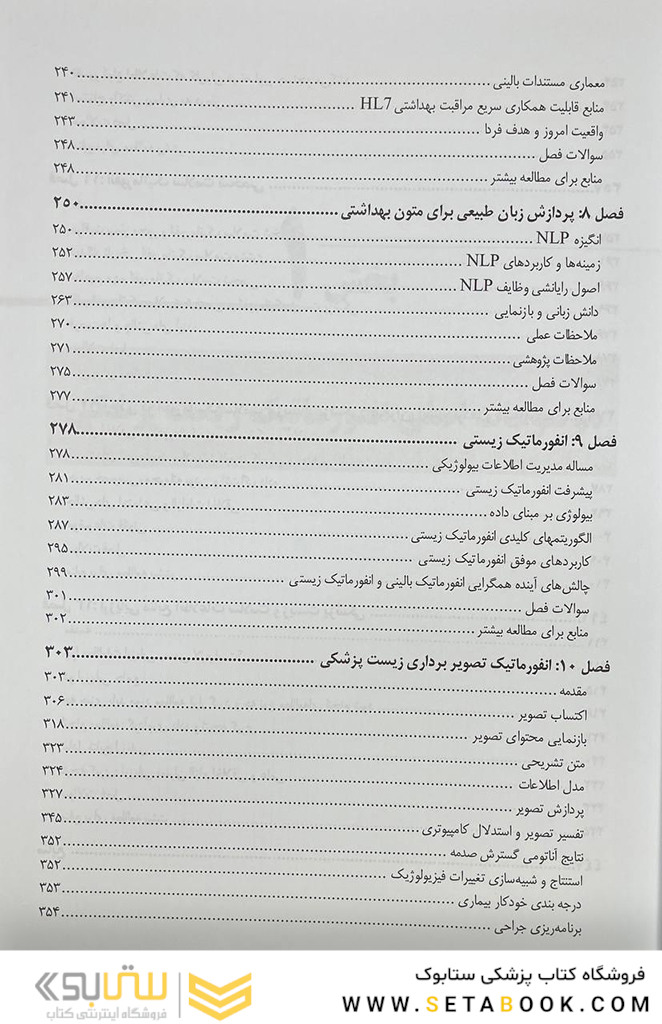 معماری مستندات بالینی ........ ۲۴۰
منابع قابلیت همکاری سریع مراقبت بهداشتی HL7 ........ ۲۴۱
واقعیت امروز و هدف فردا ........ ۲۴۳
سوالات فصل ........ ۲۴۸
منابع برای مطالعه بیشتر ........ ۲۴۸
فصل ۸: پردازش زبان طبیعی برای متون بهداشتی ........ ۲۵۰
انگیزه NLP ........ ۲۵۰
زمینه‌ها و کاربردهای NLP ........ ۲۵۲
اصول رایانشی وظایف NLP ........ ۲۵۷
دانش زبانی و بازنمایی ........ ۲۶۳
ملاحظات عملی ........ ۲۷۰
ملاحظات پژوهشی ........ ۲۷۱
سوالات فصل ........ ۲۷۵
منابع برای مطالعه بیشتر ........ ۲۷۷
فصل ۹: انفورماتیک زیستی ........ ۲۷۸
مساله مدیریت اطلاعات بیولوژیکی ........ ۲۷۸
پیشرفت انفورماتیک زیستی ........ ۲۸۱
بیولوژی بر مبنای داده ........ ۲۸۳
الگوریتمهای کلیدی انفورماتیک زیستی ........ ۲۸۷
کاربردهای موفق انفورماتیک زیستی ........ ۲۹۵
چالش‌های آینده همگرایی انفورماتیک بالینی و انفورماتیک زیستی ........ ۲۹۹
سوالات فصل ........ ۳۰۱
منابع برای مطالعه بیشتر ........ ۳۰۲
فصل ۱۰: انفورماتیک تصویر برداری زیست پزشکی ........ ۳۰۳
مقدمه ........ ۳۰۳
اکتساب تصویر ........ ۳۰۶
بازنمایی محتوای تصویر ........ ۳۱۸
متن تشریحی ........ ۳۲۳
مدل اطلاعات ........ ۳۲۴
پردازش تصویر ........ ۳۲۷
تفسیر تصویر و استدلال کامپیوتری ........ ۳۴۵
نتایج آناتومی گسترش صدمه ........ ۳۵۲
استنتاج و شبیه‌سازی تغییرات فیزیولوژیک ........ ۳۵۲
درجه بندی خودکار بیماری ........ ۳۵۳
برنامه‌ریزی جراحی ........ ۳۵۴
فروشگاه کتاب پزشکی ستابوک
WWW.SETABOOK.COM
ستابوک
فروشگاه اینترنتی کتاب